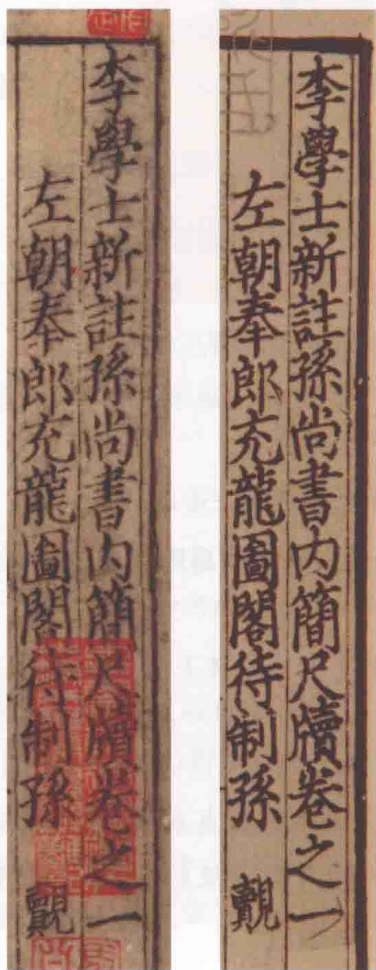 李學士新註孫尚書内簡尺牘卷之一
左朝奉郎充龍圖閣待制孫　覿
李學士新註孫尚書内簡尺牘卷之一
左朝奉郎充龍圖閣待制孫　覿